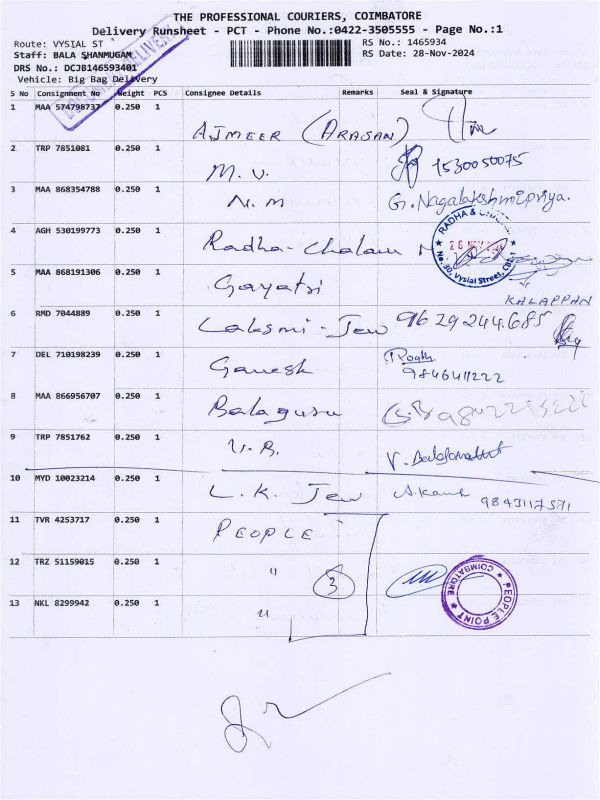 THE PROFESSIONAL COURIERS, COIMBATORE
Delivery Runsheet - PCT - Phone No.:0422-3505555 - Page No.:1
Route: VYSIAL ST RS No.: 1465934
Staff: BALA SHANMUGAM RS Date: 28-Nov-2024
DRS No.: DCJB146593401
Vehicle: Big Bag Delivery
S No Consignment No Weight PCS Consignee Details Remarks Seal & Signature
1 MAA 574798737 0.250 1 AJMEER (ARASAN)
2 TRP 7851081 0.250 1 M. V. 1530050075
3 MAA 868354788 0.250 1 N. M G. Nagalakshmipriya.
RADHA &
4 AGH 530199773 0.250 1 Radha-Chalam
No. 30, Vysial Street, CBE-1
5 MAA 868191306 0.250 1 Gayatri
KALAPPAN
6 RMD 7044889 0.250 1 Laksmi-Jew 9629244685
7 DEL 710198239 0.250 1 Ganesh
9846411222
8 MAA 866956707 0.250 1 Balaguru
9 TRP 7851762 0.250 1 V. R.
10 MYD 10023214 0.250 1 L. K. Jew 9843117571
11 TVR 4253717 0.250 1 PEOPLE
12 TRZ 51159015 0.250 1 " 3
PEOPLE POINT COIMBATORE
13 NKL 8299942 0.250 1 "